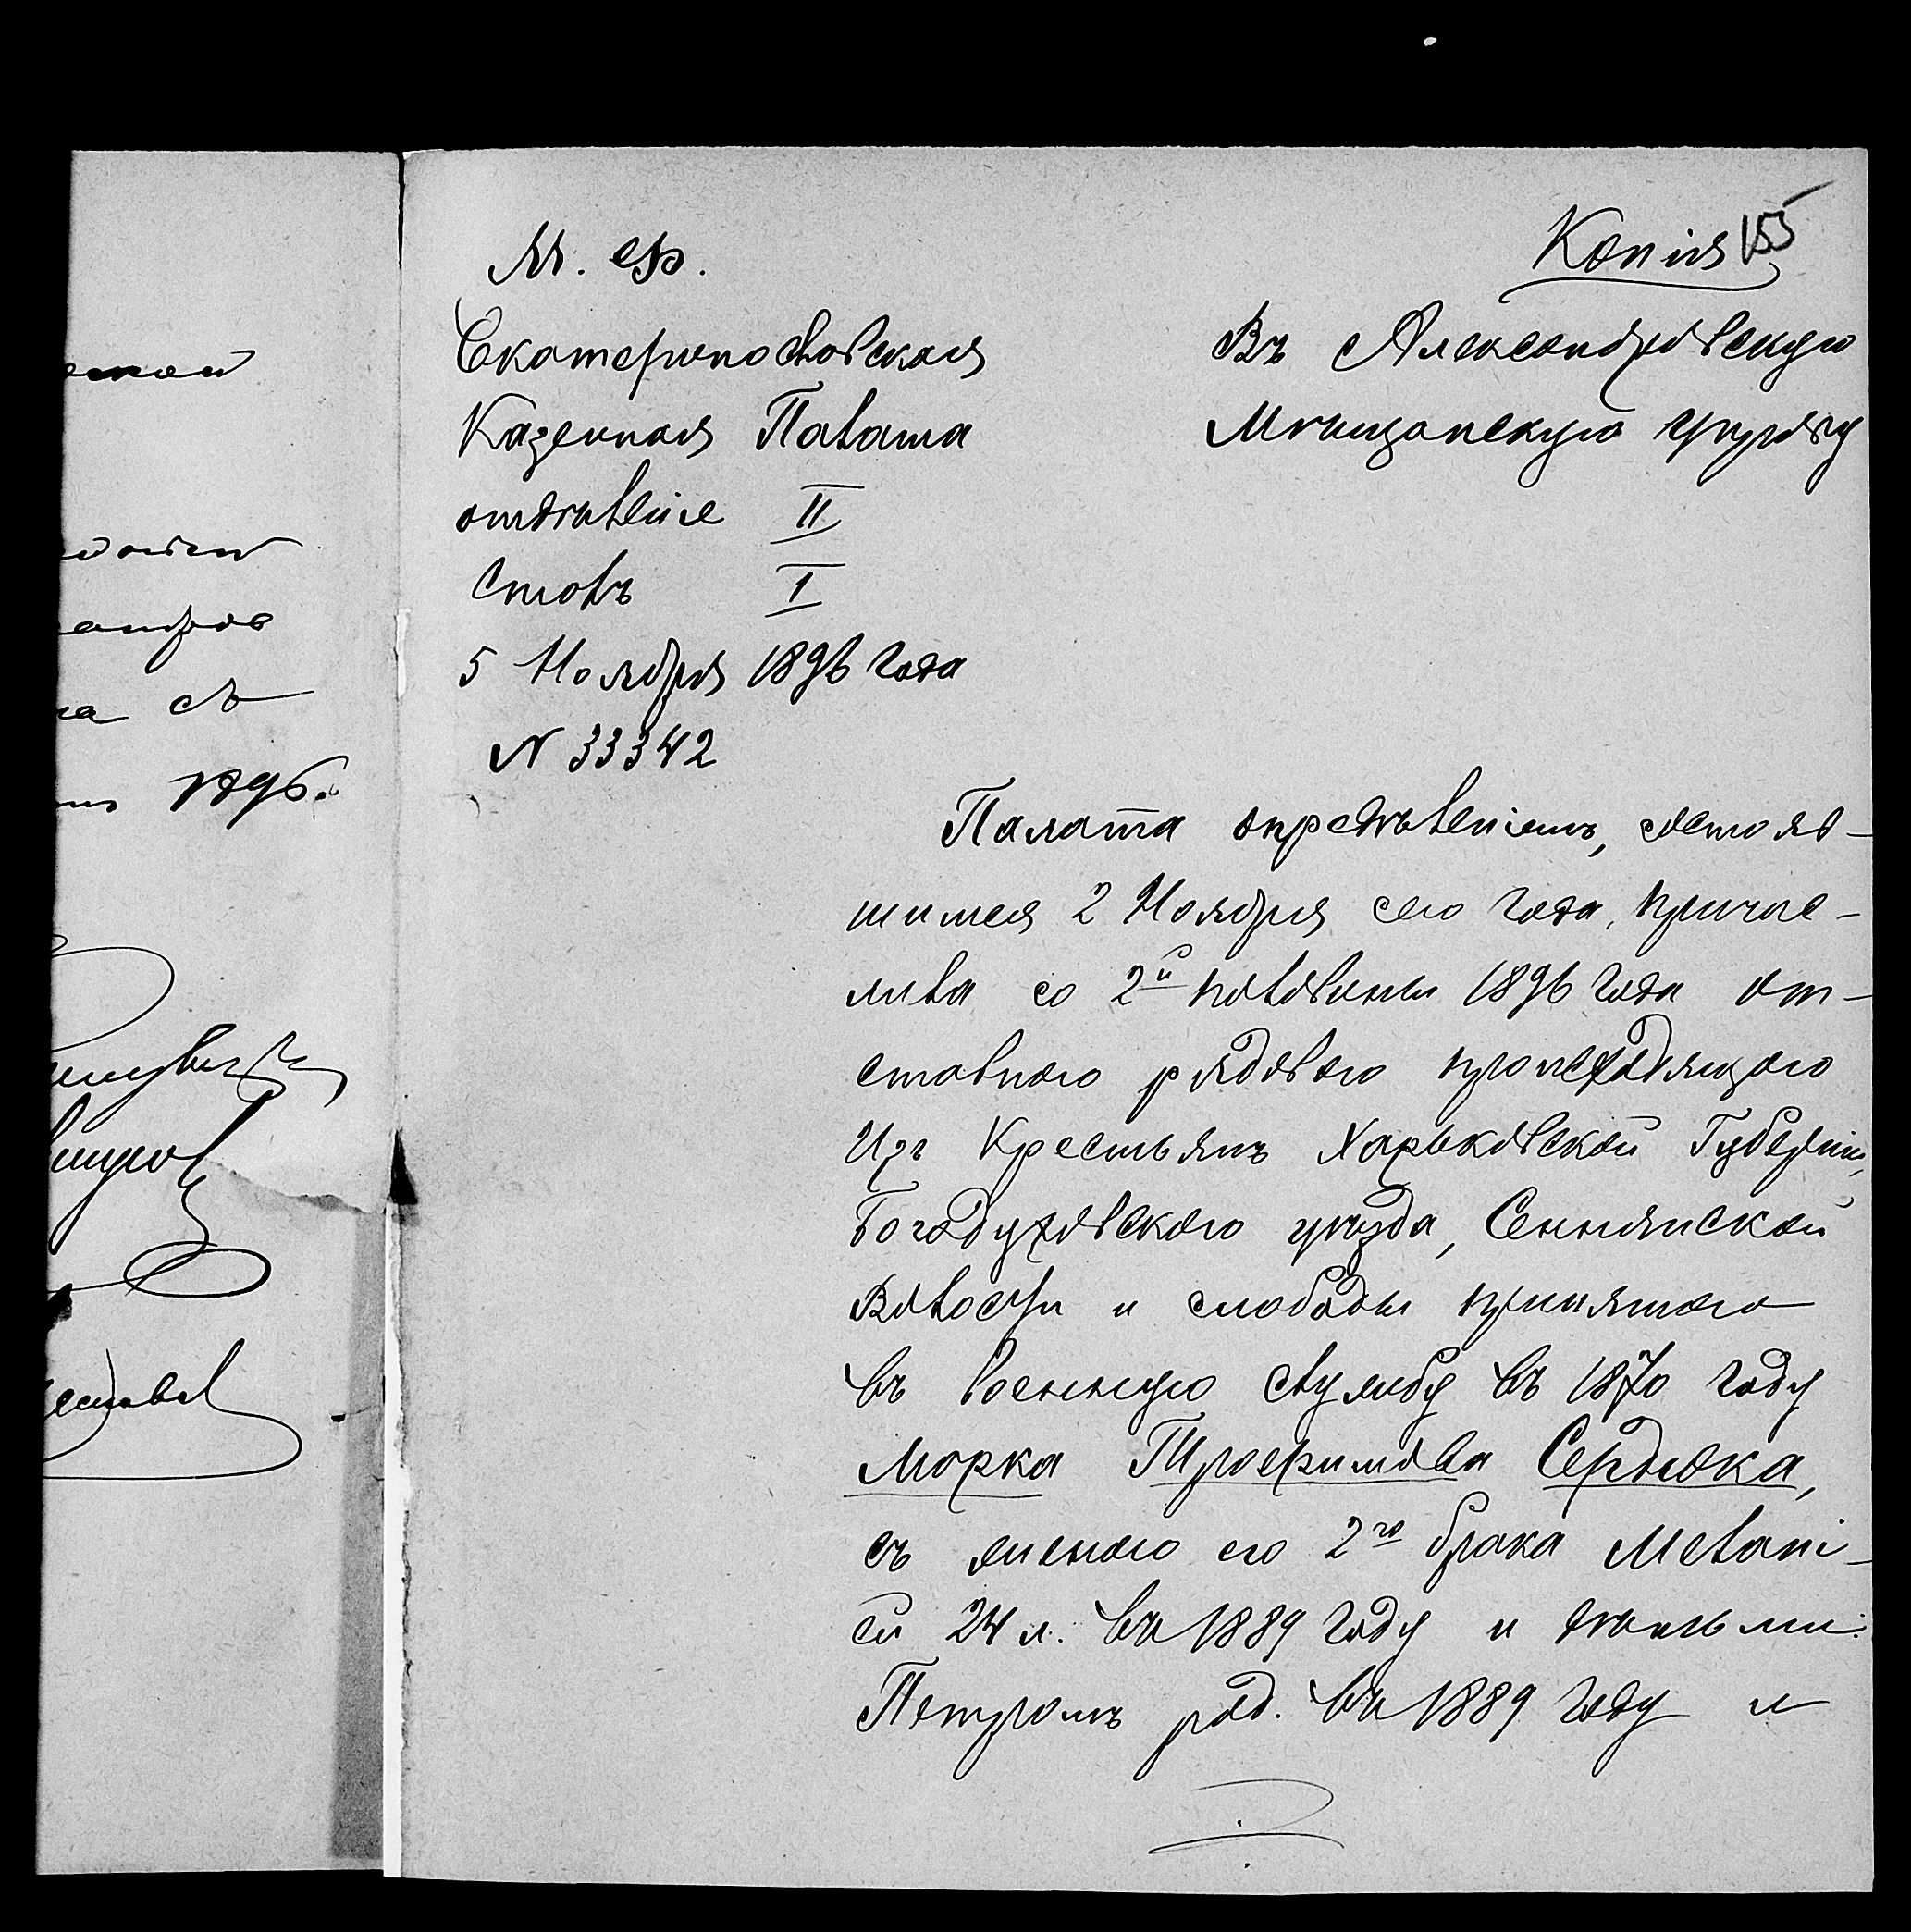 Копія 155
М. Ф.
Екатеринославская
Казенная Палата
отдѣленіе II
Столъ I
5 Ноября 1896 года
N 33342
Въ Александровскую
Мѣщанскую управу
Палата опредѣленіемъ, состояв-
шимся 2 Ноября сего года, причис-
лила со 2й половины 1896 года от-
ставного рядового происходящаго
Изъ Крестьянъ Харьковской Губерніи,
Богодуховского уѣзда, Сеннянской
Волости и слободы принятого
въ военную службу въ 1870 году
Марка Трофимова Сердюка,
съ женою его 2го брака Мелані-
ей 24 л. въ 1889 году и дѣтьми:
Петромъ род. въ 1889 году и
на съ
1896.